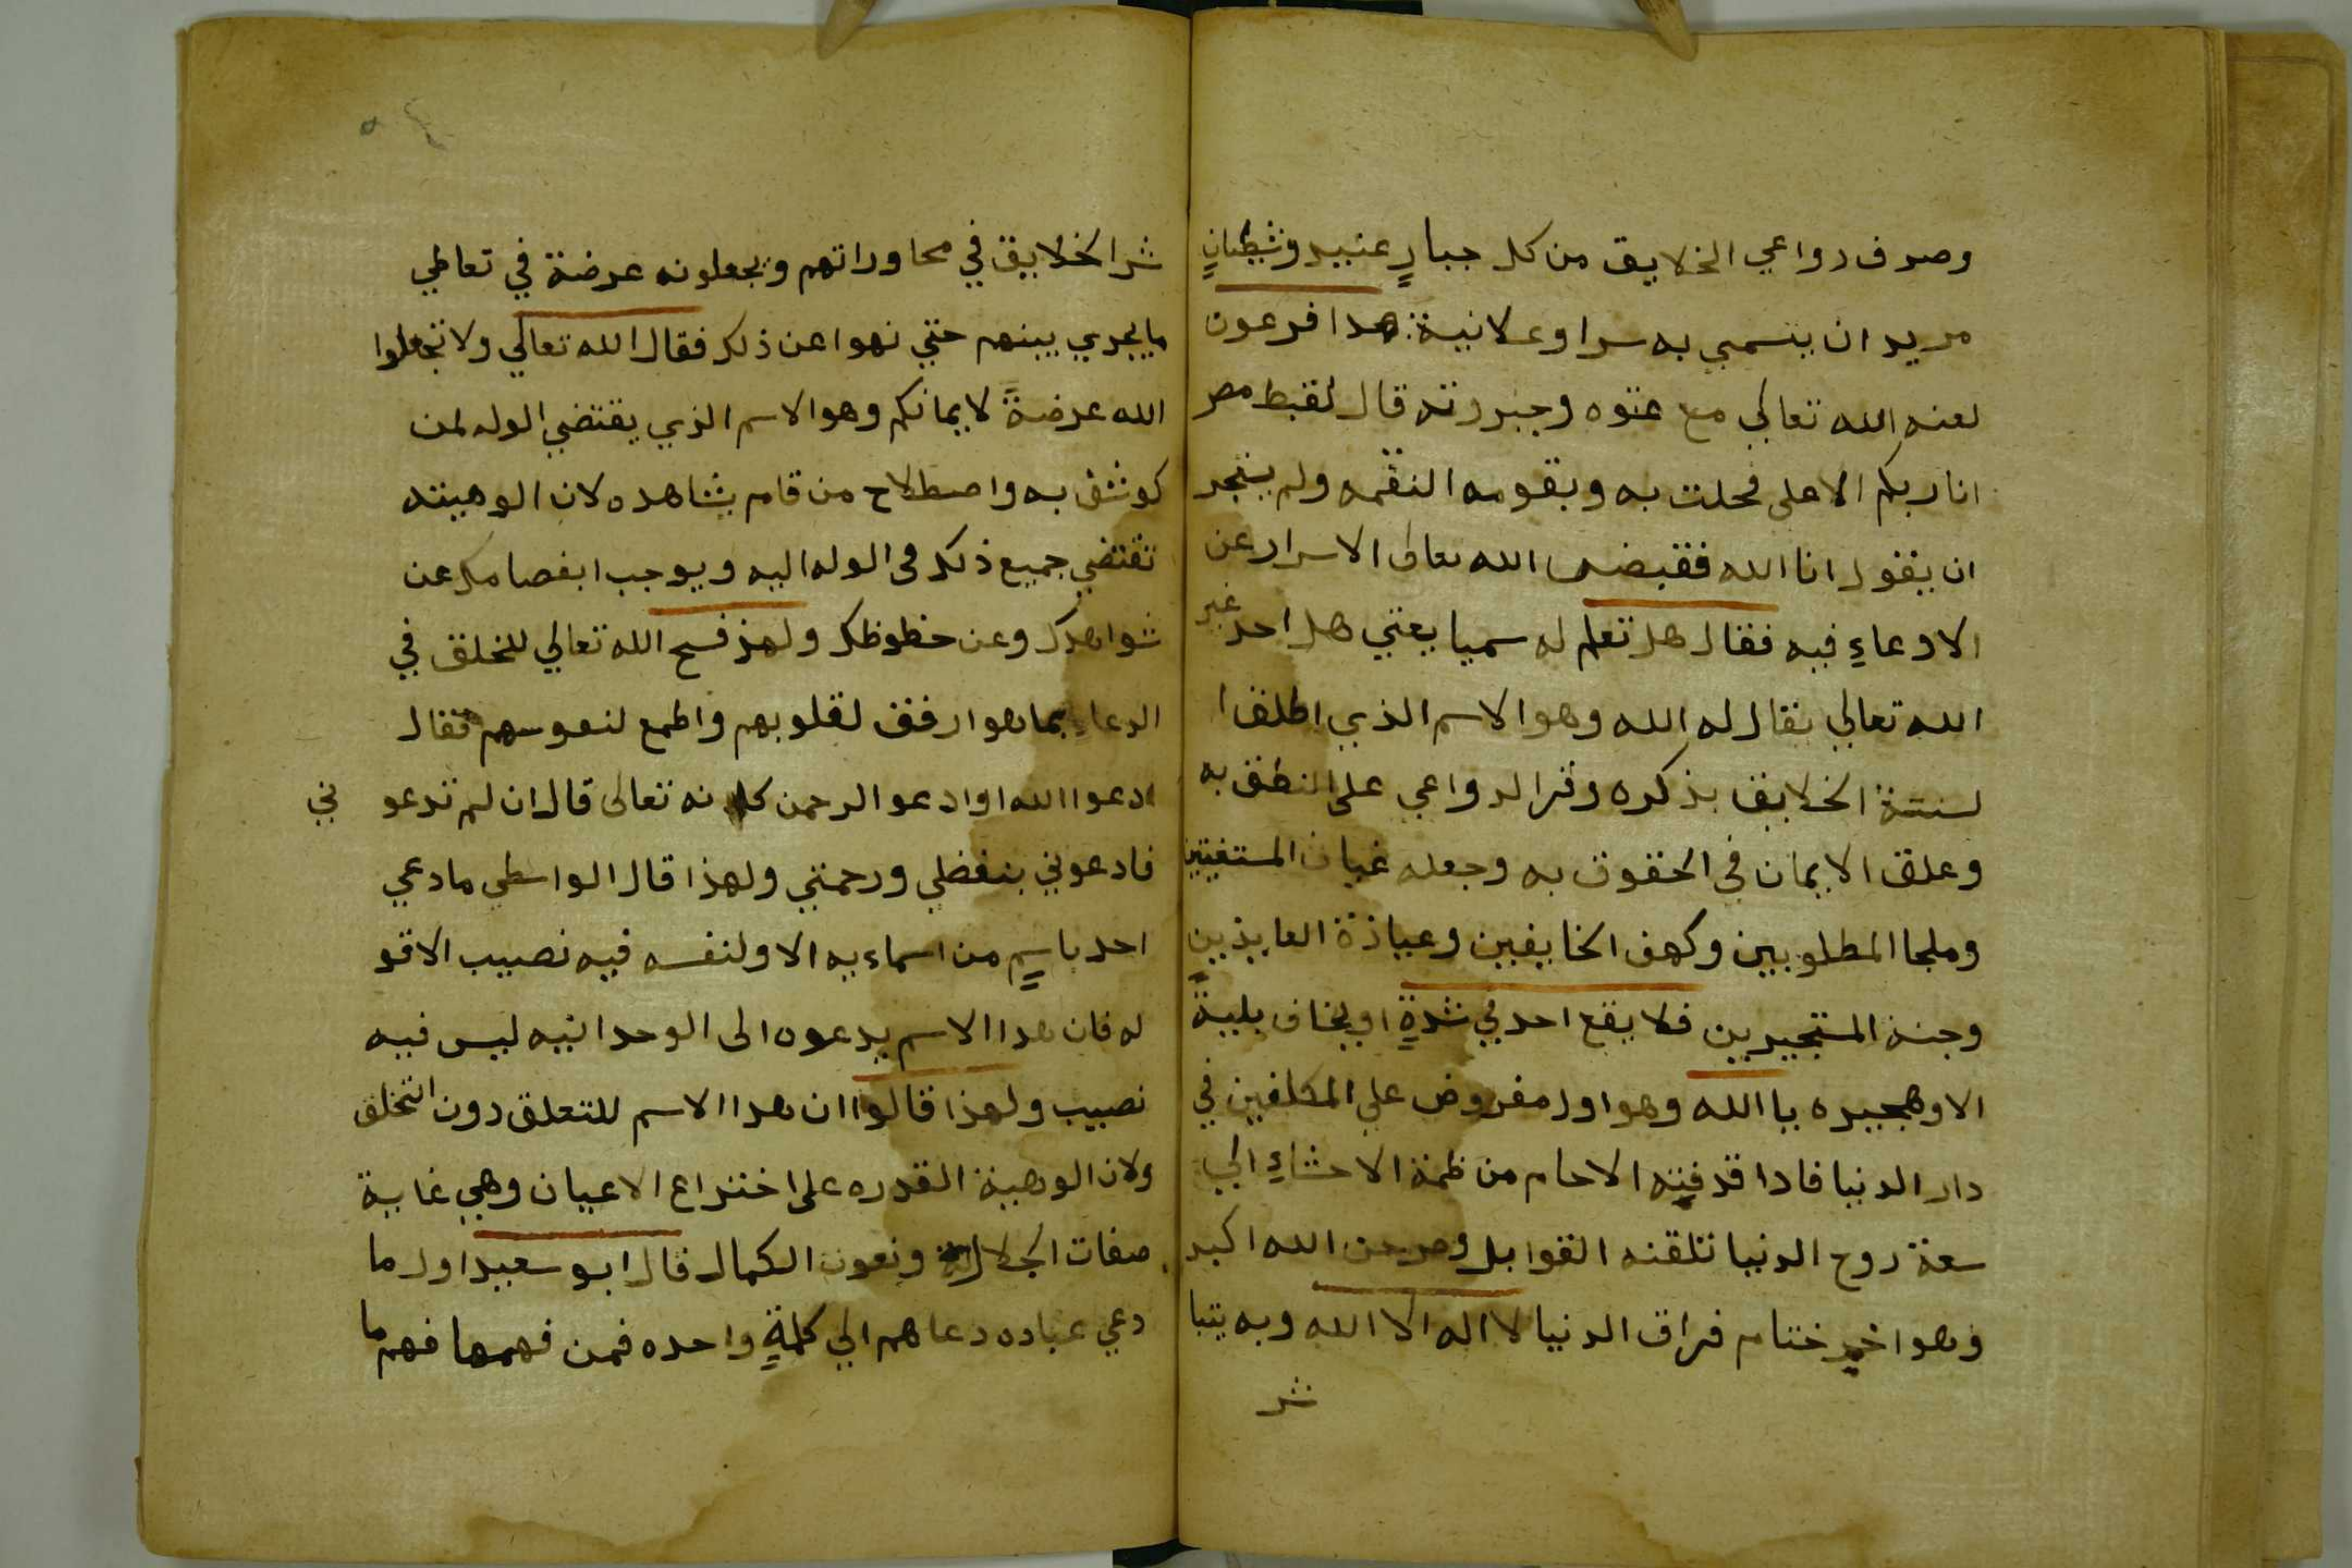 وصرف دواعي الخلايق من كل جبارٍ عنيد وشيطانٍ
مريد ان يتسمي به سرا وعلانية هدا فرعون
لعنه الله تعالي مع عتوه وجبروته قال لقبط مصر
انا ربكم الاعلى فحلت به وبقومه النقمه ولم يتجر
ان يقول انا الله فقبض الله تعالى الاسرار عن
الادعاءِ فيه فقال هل تعلم له سميا يعني هل احد غير
الله تعالي يقال له الله وهو الاسم الذي اطلق ا
لسنتة الخلايق بذكره وقر الدواعي على النطق به
وعلق الايمان في الحقوق به وجعله غياث المستغيثين
وملجا المطلوبين وكهف الخايفين وعياذة العايذين
وجنة المستجيرين فلا يقع احد في شدةٍ او يخاف بليةً
الا وهجيره يا الله وهو اول مفروض علي المكلفين في
دار الدنيا فادا قدفته الاحام من ظمة الاحشاءِ الي
سعة روح الدنيا تلقنه القوابل الله اكبر
وهو اخر ختام فراق الدنيا لا اله الا الله وبه يتبا
شر
شر الخلايق في محاوراتهم ويجعلونه عرضة في تعاطي
ما يجري بينهم حتي نهوا عن ذلك فقال الله تعالي ولا تجعلوا
الله عرضةً لايمانكم وهو الاسم الذي يقتضي الوله لمن
كوشف به واصطلاح من قام بشاهده لان الوهيته
تقتضي جميع ذلك في الوله اليه ويوجب انفصامك عن
شواهدك وعن حظوظك ولهذ فسح الله تعالي للخلق في
الدعاءِ بما هو ارفق لقلوبهم واطمع لنفوسهم فقال
ادعوا الله او ادعو الرحمن كانه تعالى قال ان لم تدعو ني
فادعوني بتفضلي ورحمتي ولهذا قال الواسطي ما دعي
احد باسمٍ من اسماءيه الا ولنفسه فيه نصيب الا قو
له فان هدا الاسم يدعوه الى الوحدانيه ليس فيه
نصيب ولهذا قالوا ان هدا الاسم للتعلق دون التخلق
ولان الوهية القدره على اختراع الاعيان وهي غاية
صفات الجلال ونعوت الكمال قال ابو سعيد اول ما
دعي عباده دعاهم الي كلمةٍ واحده فمن فهمها فهم ما